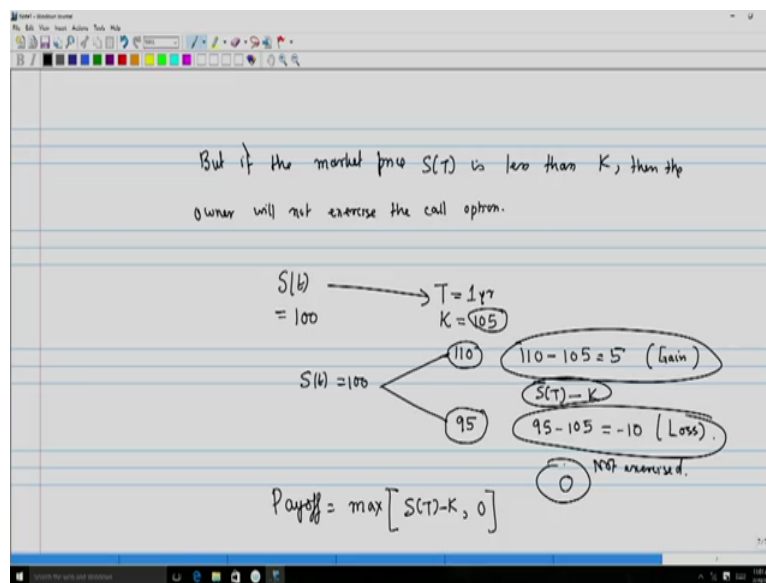 Note1 - Windows Journal
File Edit View Insert Actions Tools Help
B I
But if the market price S(T) is less than K, then the
owner will not exercise the call option.
S(t) → T = 1 yr
= 100 K = 105
110 110 - 105 = 5 (Gain)
S(t) = 100 S(T) - K
95 95 - 105 = -10 (Loss).
Not exercised.
0
Payoff = max [S(T)-K, 0]
Search the web and Windows